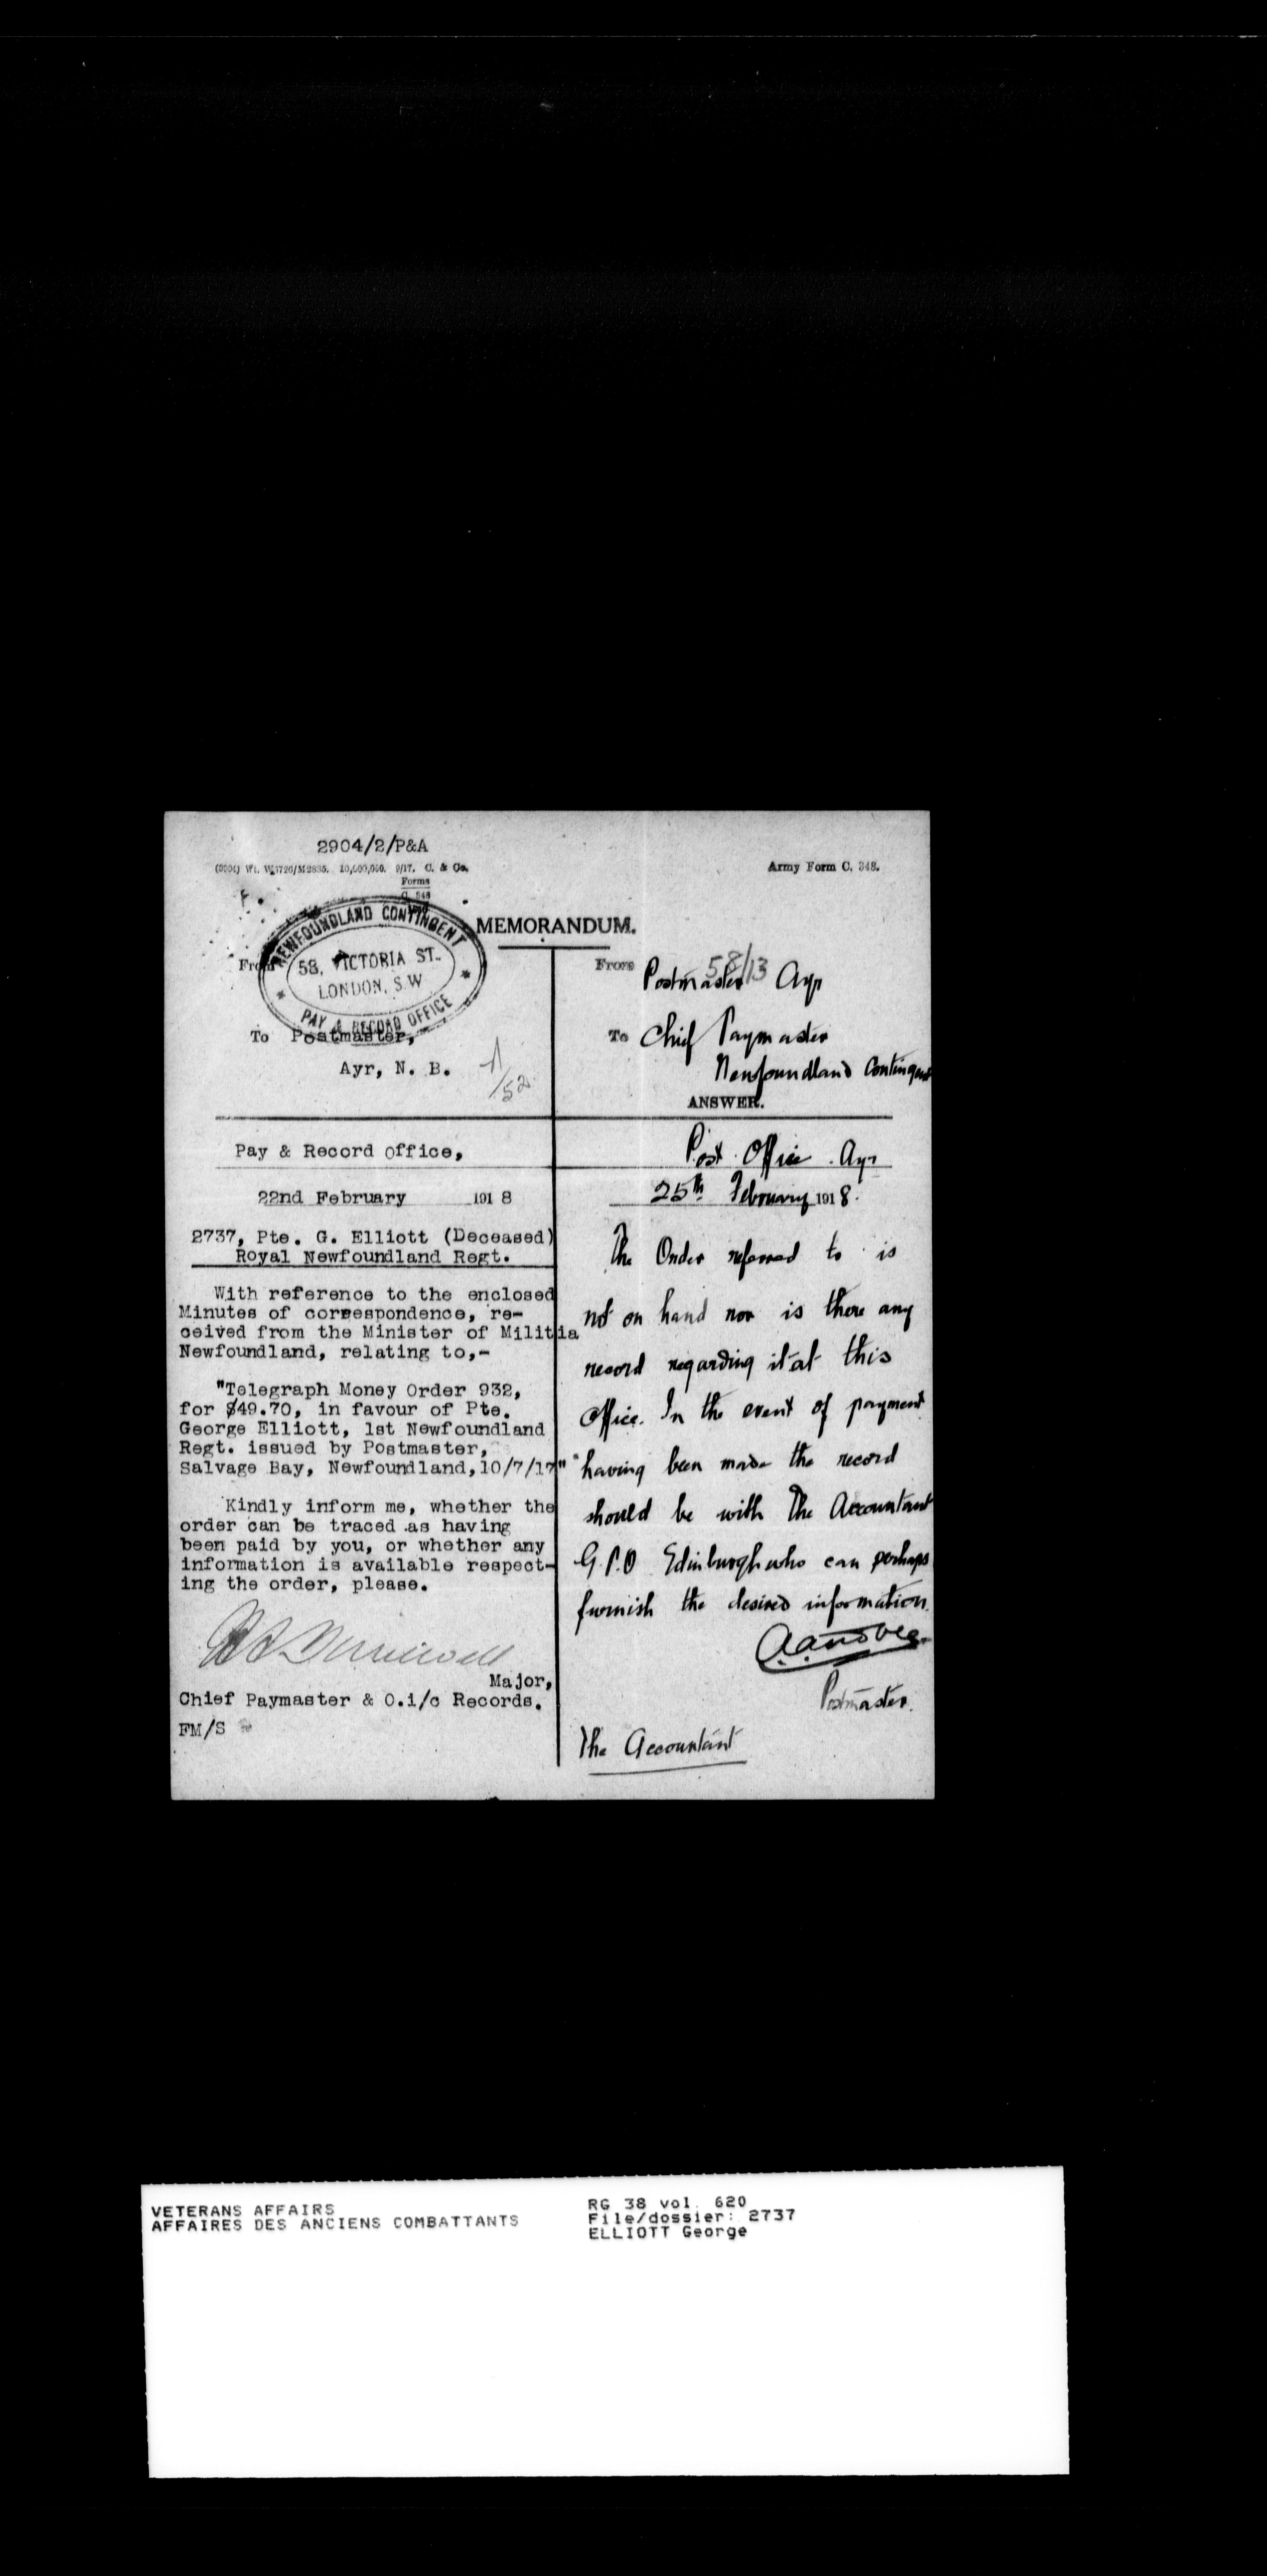 2904/2/P&A
10,000,000. 9/17. C. & Co.
Forms
Army Form C. 348.
MEMORANDUM.
From
NEWFOUNDLAND CONTINGENT
58, VICTORIA ST.
LONDON, S.W
PAY & RECORD OFFICE
To Postmaster,
Ayr, N. B.
Pay & Record Office,
22nd February 1918
2737, Pte. G. Elliott (Deceased)
Royal Newfoundland Regt.
With reference to the enclosed
Minutes of correspondence, re-
ceived from the Minister of Militia
Newfoundland, relating to,-
"Telegraph Money Order 932,
for $49.70, in favour of Pte.
George Elliott, 1st Newfoundland
Regt. issued by Postmaster,
Salvage Bay, Newfoundland, 10/7/17"
Kindly inform me, whether the
order can be traced as having
been paid by you, or whether any
information is available respect-
ing the order, please.
Major,
Chief Paymaster & O.i/c Records.
FM/S
58/13
From Postmaster Ayr
To Chief Paymaster
Newfoundland Contingent
ANSWER.
Post Office Ayr
25th February 1918.
The Order referred to is
not on hand nor is there any
record regarding it at this
Office. In the event of payment
having been made the record
should be with the Accountant
G.P.O Edinburgh who can perhaps
furnish the desired information.
Postmaster.
The Accountant
VETERANS AFFAIRS
AFFAIRES DES ANCIENS COMBATTANTS
RG 38 vol. 620
File/dossier: 2737
ELLIOTT George